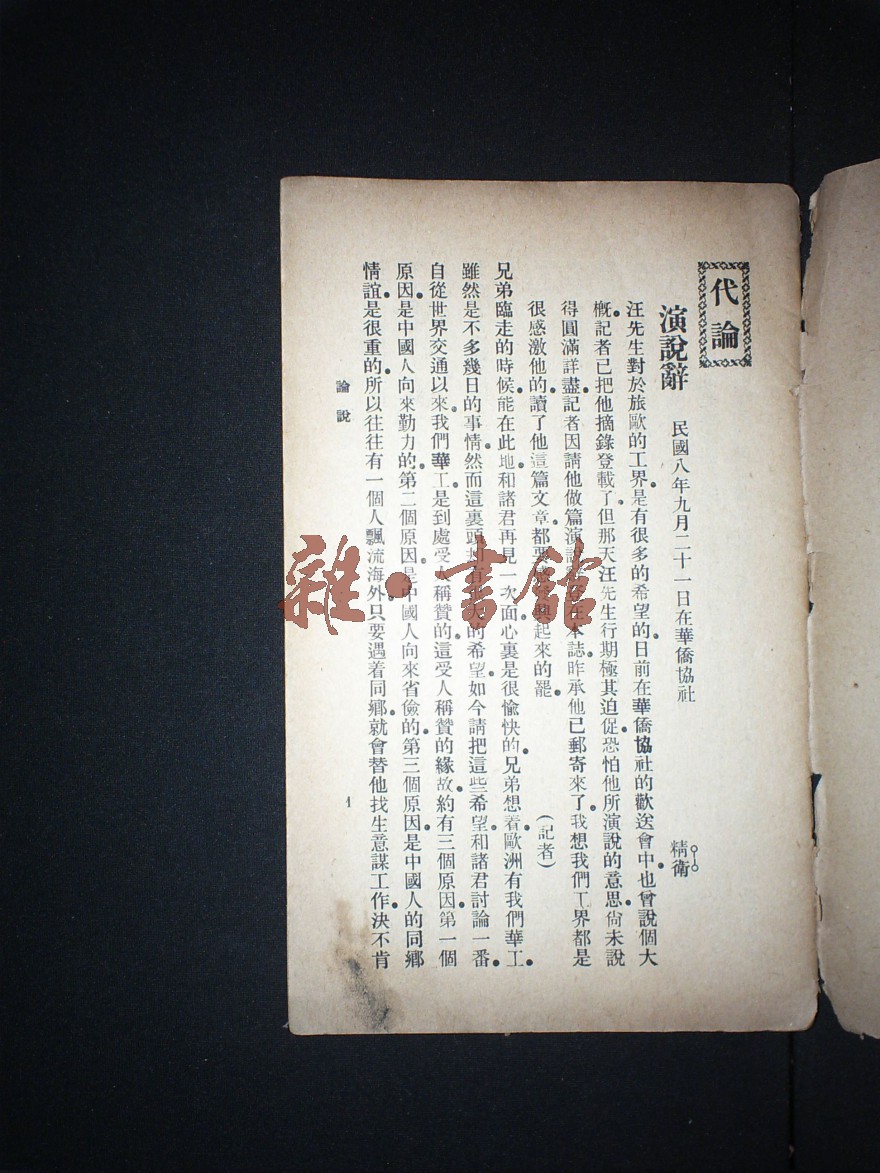 代論
演說辭 民國八年九月二十一日在華僑協社 精衛
汪先生對於旅歐的工界是有很多的希望的日前在華僑協社的歡送會中也曾說個大
概記者已把他摘錄登載了但那天汪先生行期極其迫促恐怕他所演說的意思尙未說
得圓滿詳盡記者因請他做篇演說 在本誌昨承他已郵寄來了我想我們工界都是
很感激他的讀了他這篇文章都要 興起來的罷 (記者)
兄弟臨走的時候能在此地和諸君再見一次面心裏是很愉快的兄弟想着歐洲有我們華工
雖然是不多幾日的事情然而這裏頭 的希望如今請把這些希望和諸君討論一番
自從世界交通以來我們華工是到處受人稱贊的這受人稱贊的緣故約有三個原因第一個
原因是中國人向來勤力的第二個原因是中國人向來省儉的第三個原因是中國人的同鄉
情誼是很重的所以往往有一個人飄流海外只要遇着同鄉就會替他找生意謀工作決不肯
論說 一
雜·書館